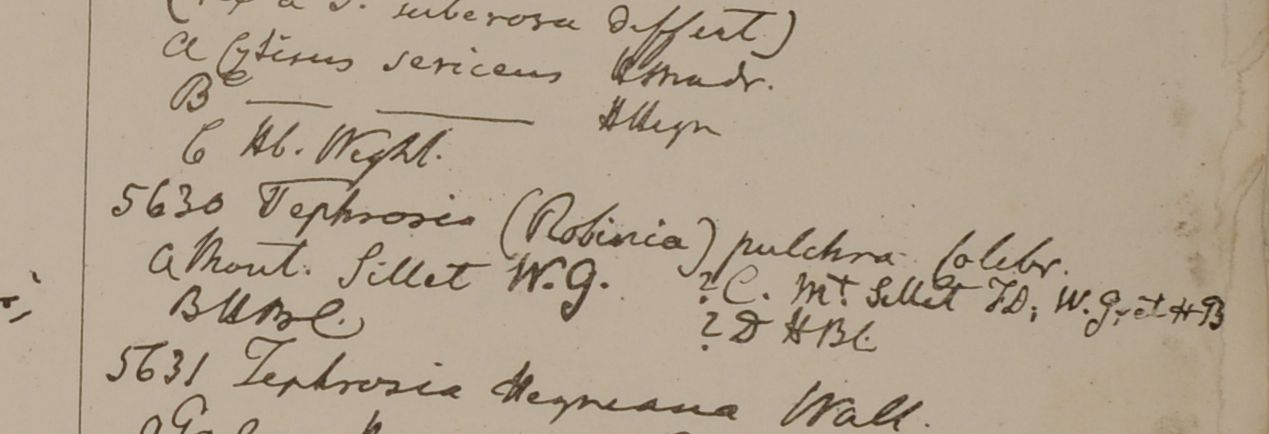 a T. suberosa differt)
a Cytisus sericeus HMadr.
B ___ ___ HHeyn
C Hb. Wight.
5630 Tephrosia (Robinia) pulchra Colebr.
a Mont. Sillet W.G. ? C. Mt. Sillet FD, W.G, et HB
B HBC. ? D HBC.
5631 Tephrosia Heyneana Wall.